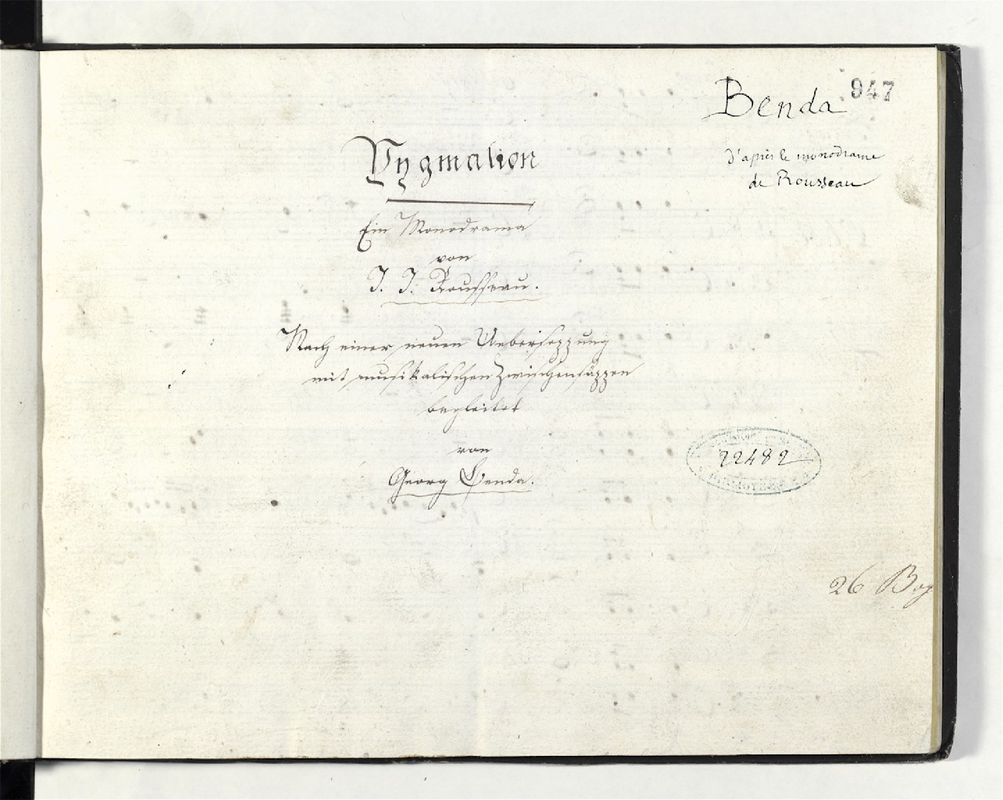 Benda
947
d'après le monodrame
de Rousseau
Pygmalion
Ein Monodrama
von
J. J. Rousseau.
Nach einer neuen Uebersezzung
mit musikalischen Zwischensäzzen
begleitet
von
Georg Benda.
22482
26 Bog